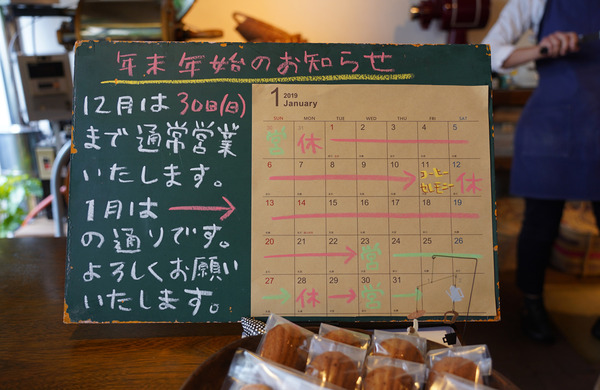 年末年始のお知らせ
12月は30日(日)
まで通常営業
いたします。
1月は→
の通りです。
よろしくお願い
いたします。
1 2019
January
SUN MON TUE WED THU FRI SAT
30 営 31 休 1 2 3 4 5
6 7 8 9 10 11 コーヒー セレモニー 12 休
13 14 15 16 17 18 19
20 21 22 23 営 24 25 26
27 28 休 29 30 営 31